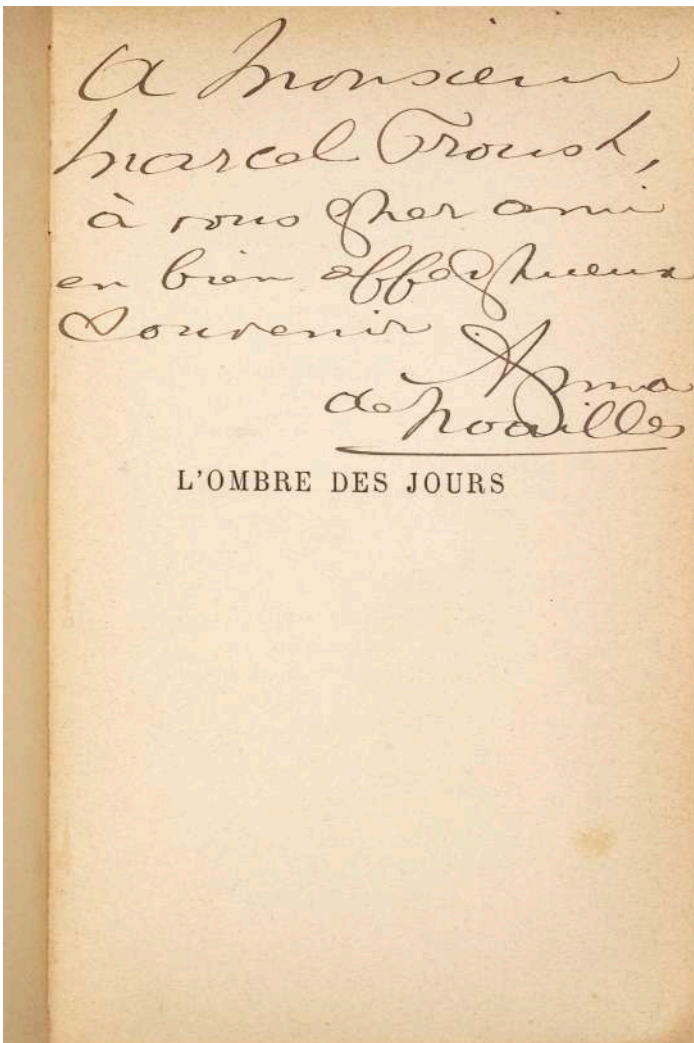 A Monsieur
Marcel Proust,
à vous cher ami
en bien affectueux
Souvenir
Anna
de Noailles
L'OMBRE DES JOURS